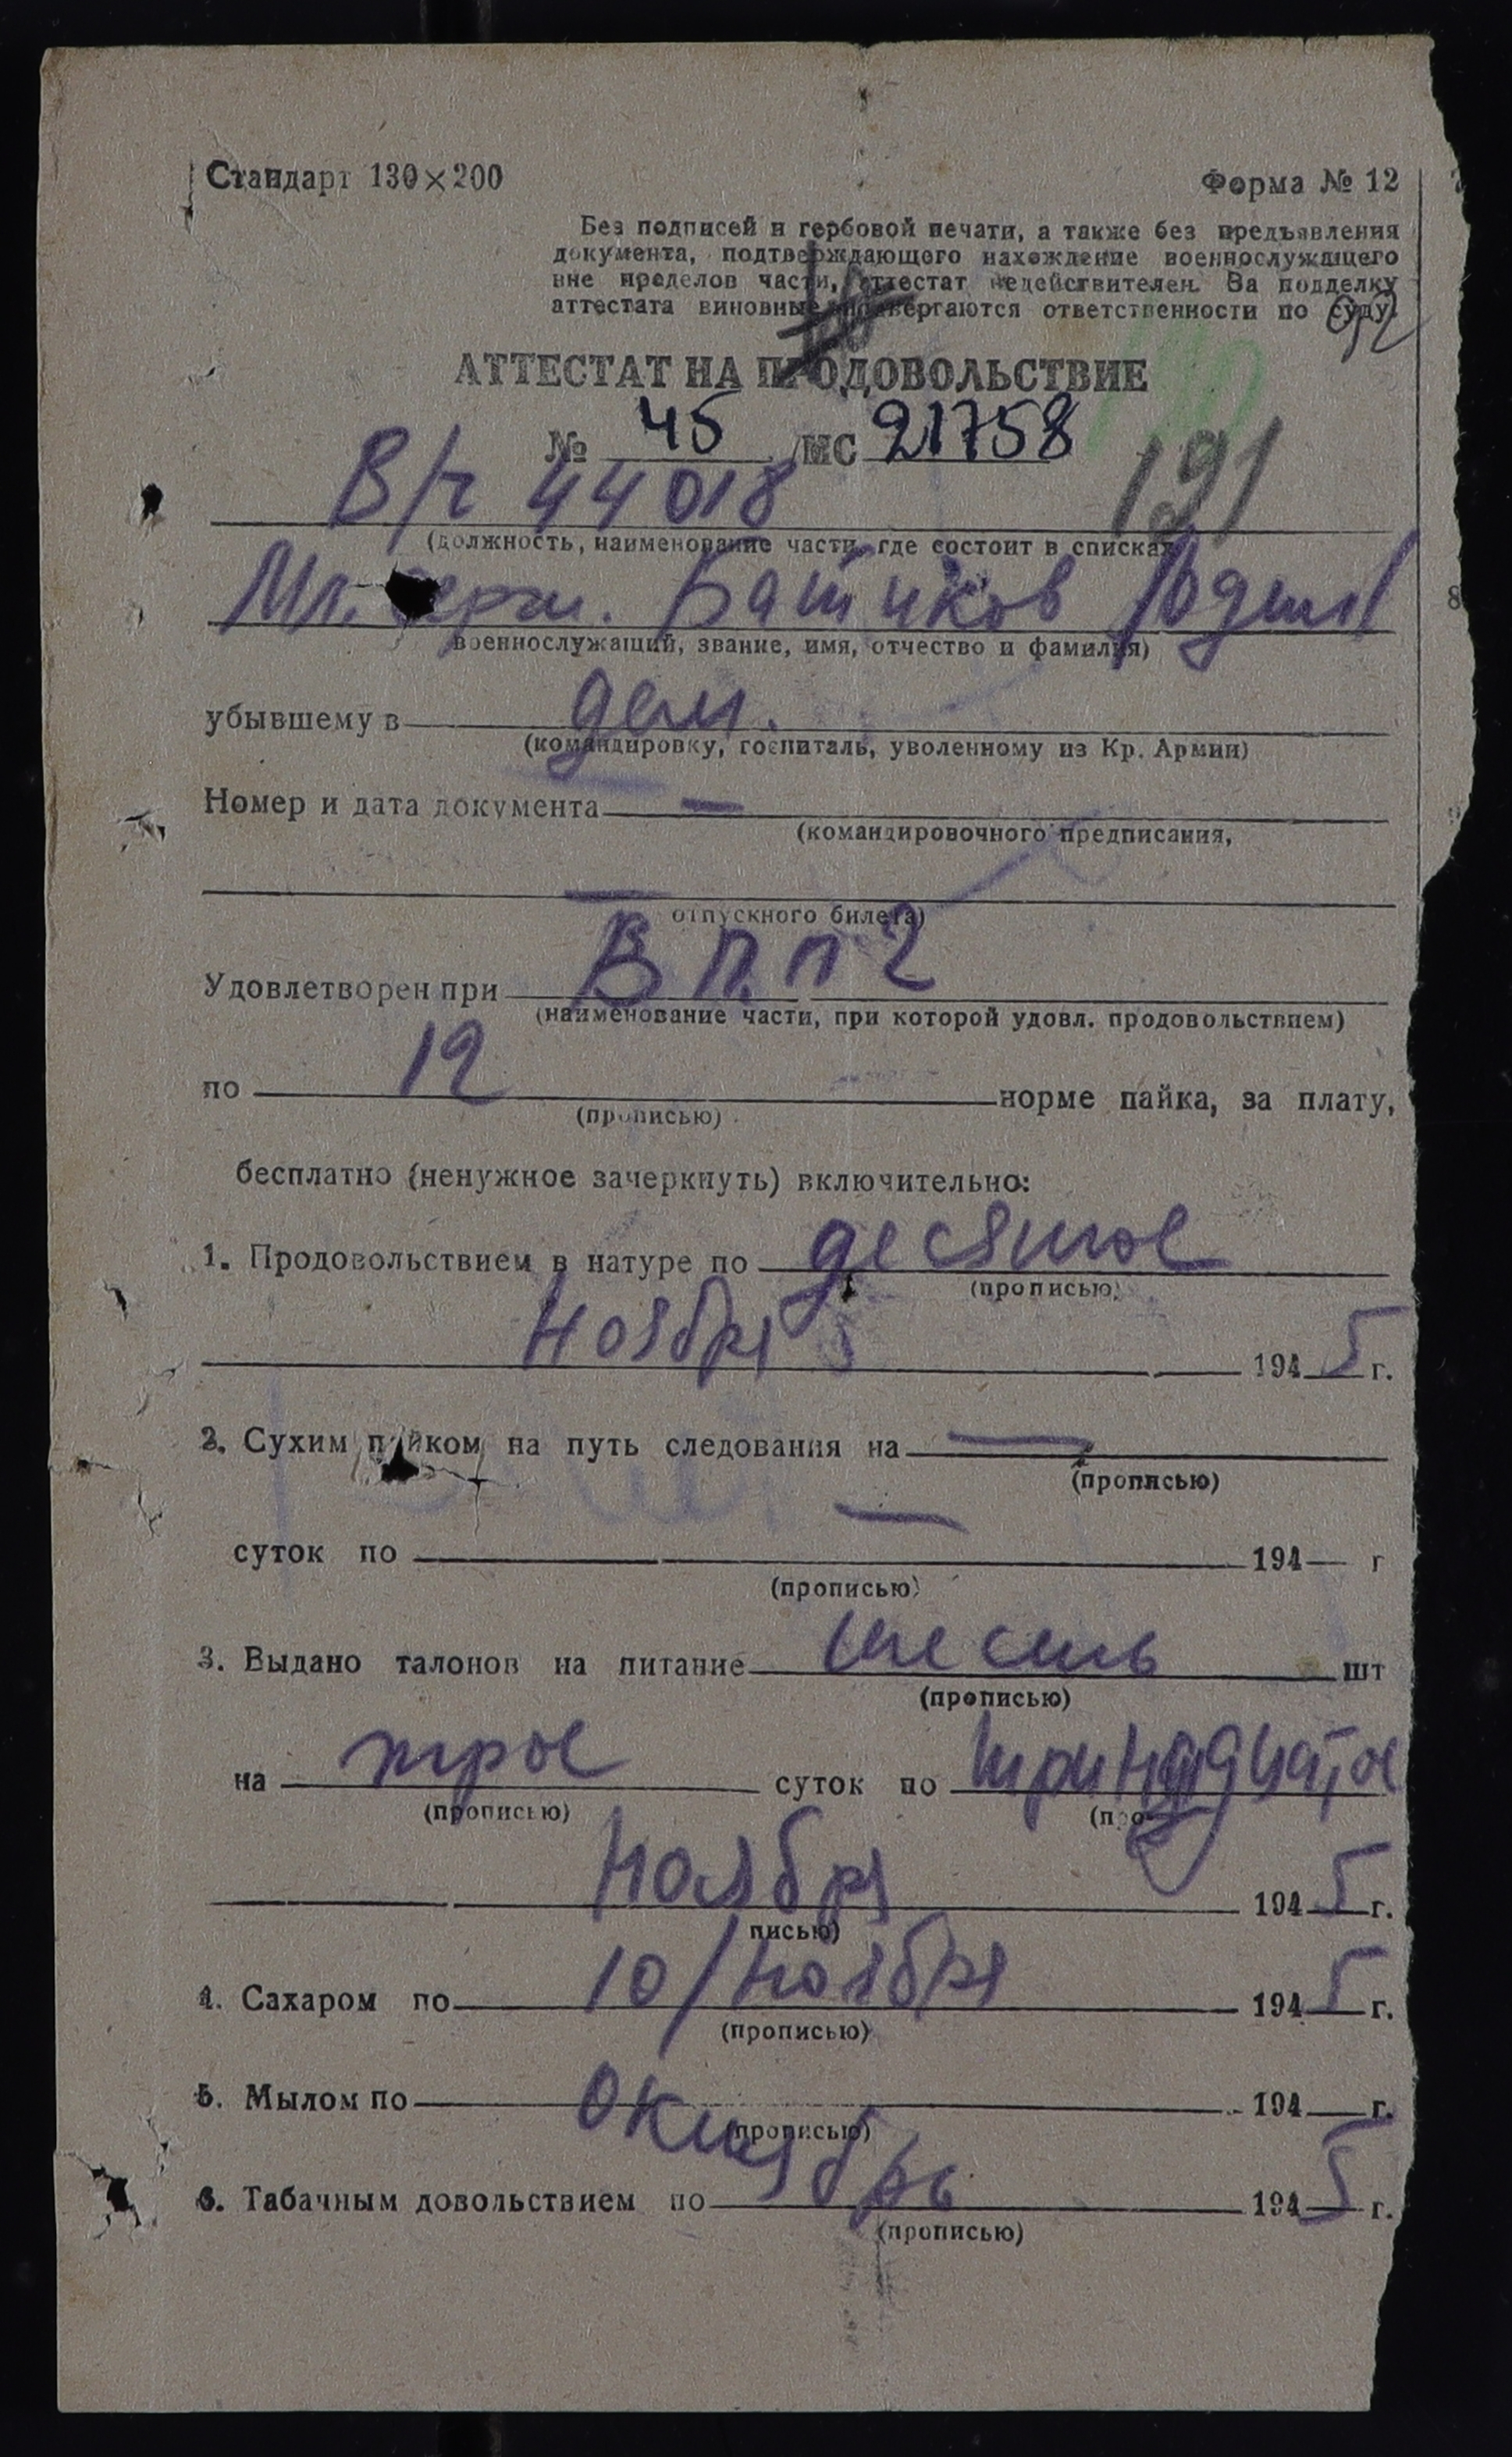 Стандарт 130×200
Форма № 12
Без подписей и гербовой печати, а также без предъявления
документа, подтверждающего нахождение военнослужащего
вне пределов части, аттестат недействителен. За подделку
аттестата виновные подвергаются ответственности по суду.
92
АТТЕСТАТ НА ПРОДОВОЛЬСТВИЕ
190
№ 45 /МС 21758
В/ч 44018 191
(должность, наименование части, где состоит в списках
Мл. серж. Батиков
военнослужащий, звание, имя, отчество и фамилия)
убывшему в дем.
(командировку, госпиталь, уволенному из Кр. Армии)
Номер и дата документа —
(командировочного предписания,
—
отпускного билета)
Удовлетворен при В П. П 2
(наименование части, при которой удовл. продовольствием)
по 12 норме пайка, за плату,
(прописью)
бесплатно (ненужное зачеркнуть) включительно:
1. Продовольствием в натуре по десятое
(прописью)
Ноября 1945 г.
2. Сухим пайком на путь следования на —
(прописью)
суток по — 194 г
(прописью)
3. Выдано талонов на питание шесть шт
(прописью)
на трое суток по тринадцатое
(прописью) (про-
Ноября 1945 г.
писью)
4. Сахаром по 10/Ноября 1945 г.
(прописью)
5. Мылом по октябрь 194 г.
(прописью)
6. Табачным довольствием по 1945 г.
(прописью)